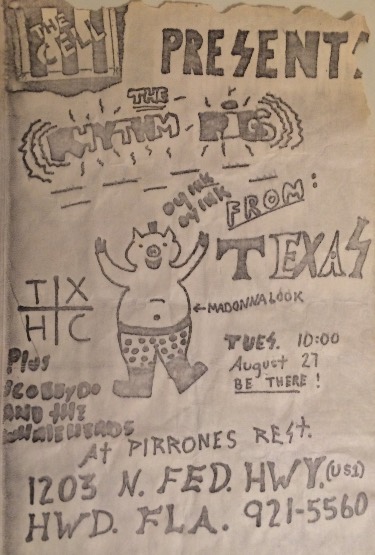 THE
CELL
PRESENTS
THE
RHYTHM PIGS
OYINK
OYINK
FROM:
TEXAS
←MADONNA LOOK
TX
HC
TUES. 10:00
August 27
BE THERE!
Plus
SCOBEYDO
AND THE
At PIRRONES RESt.
1203 N. FED. HWY. (US1)
HWD. FLA. 921-5560